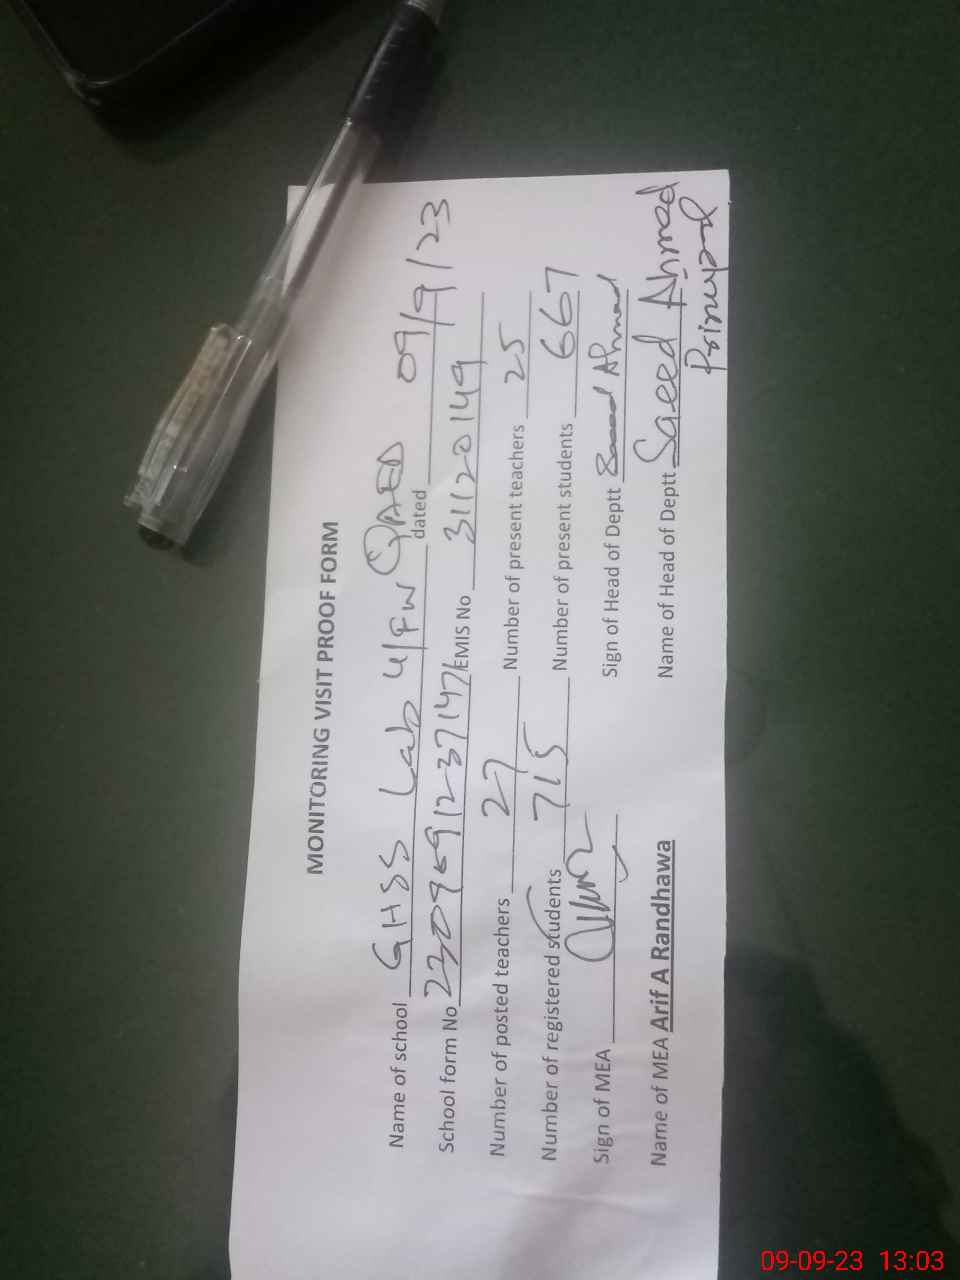 MONITORING VISIT PROOF FORM
Name of school GHSS Lab U/FW QAED dated 09/9/23
School form No EMIS No 31120149
Number of posted teachers 27 Number of present teachers 25
Number of registered students 715 Number of present students 667
Sign of MEA Sign of Head of Deptt Saeed Ahmad
Name of MEA Arif A Randhawa Name of Head of Deptt Saeed Ahmad
Principal
09-09-23 13:03